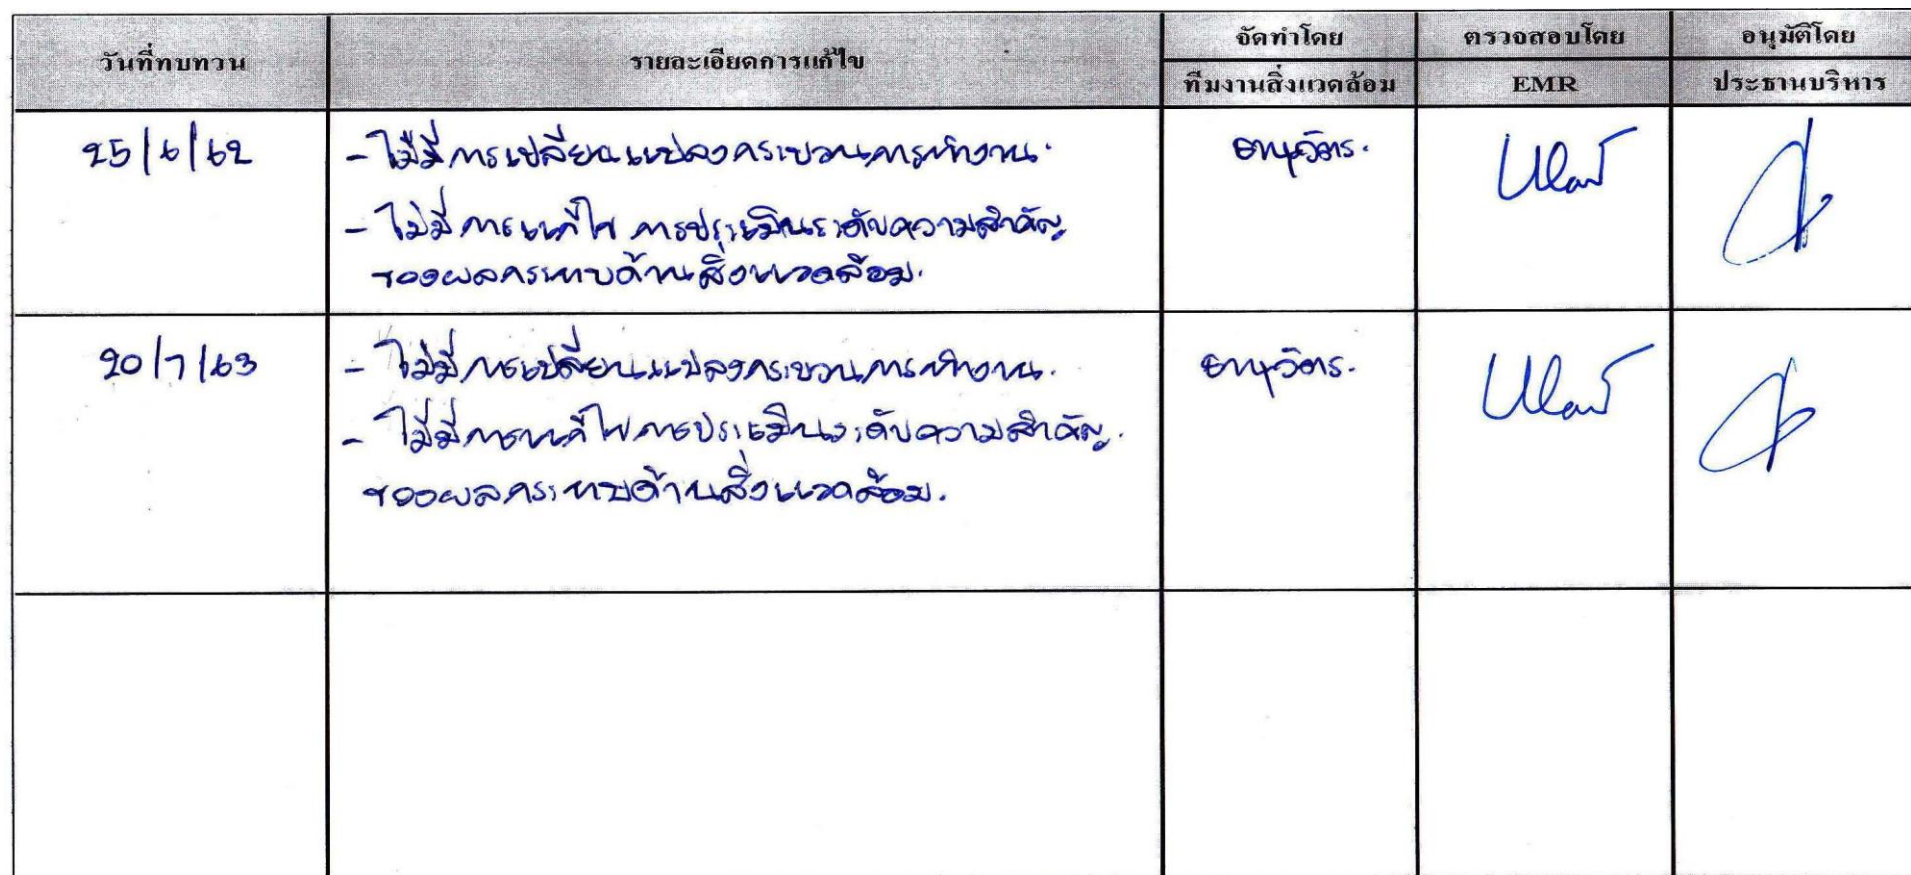 วันที่ทบทวน
รายละเอียดการแก้ไข
จัดทำโดย
ตรวจสอบโดย
อนุมัติโดย
ทีมงานสิ่งแวดล้อม
EMR
ประธานบริหาร
25/6/62
- ไม่มีการเปลี่ยนแปลงกระบวนการทำงาน.
- ไม่มีการแก้ไข การประเมินระดับความสำคัญ
ของผลกระทบด้านสิ่งแวดล้อม.
อนุวัตร.
20/7/63
- ไม่มีการเปลี่ยนแปลงกระบวนการทำงาน.
- ไม่มีการแก้ไขการประเมินระดับความสำคัญ.
ของผลกระทบด้านสิ่งแวดล้อม.
อนุวัตร.